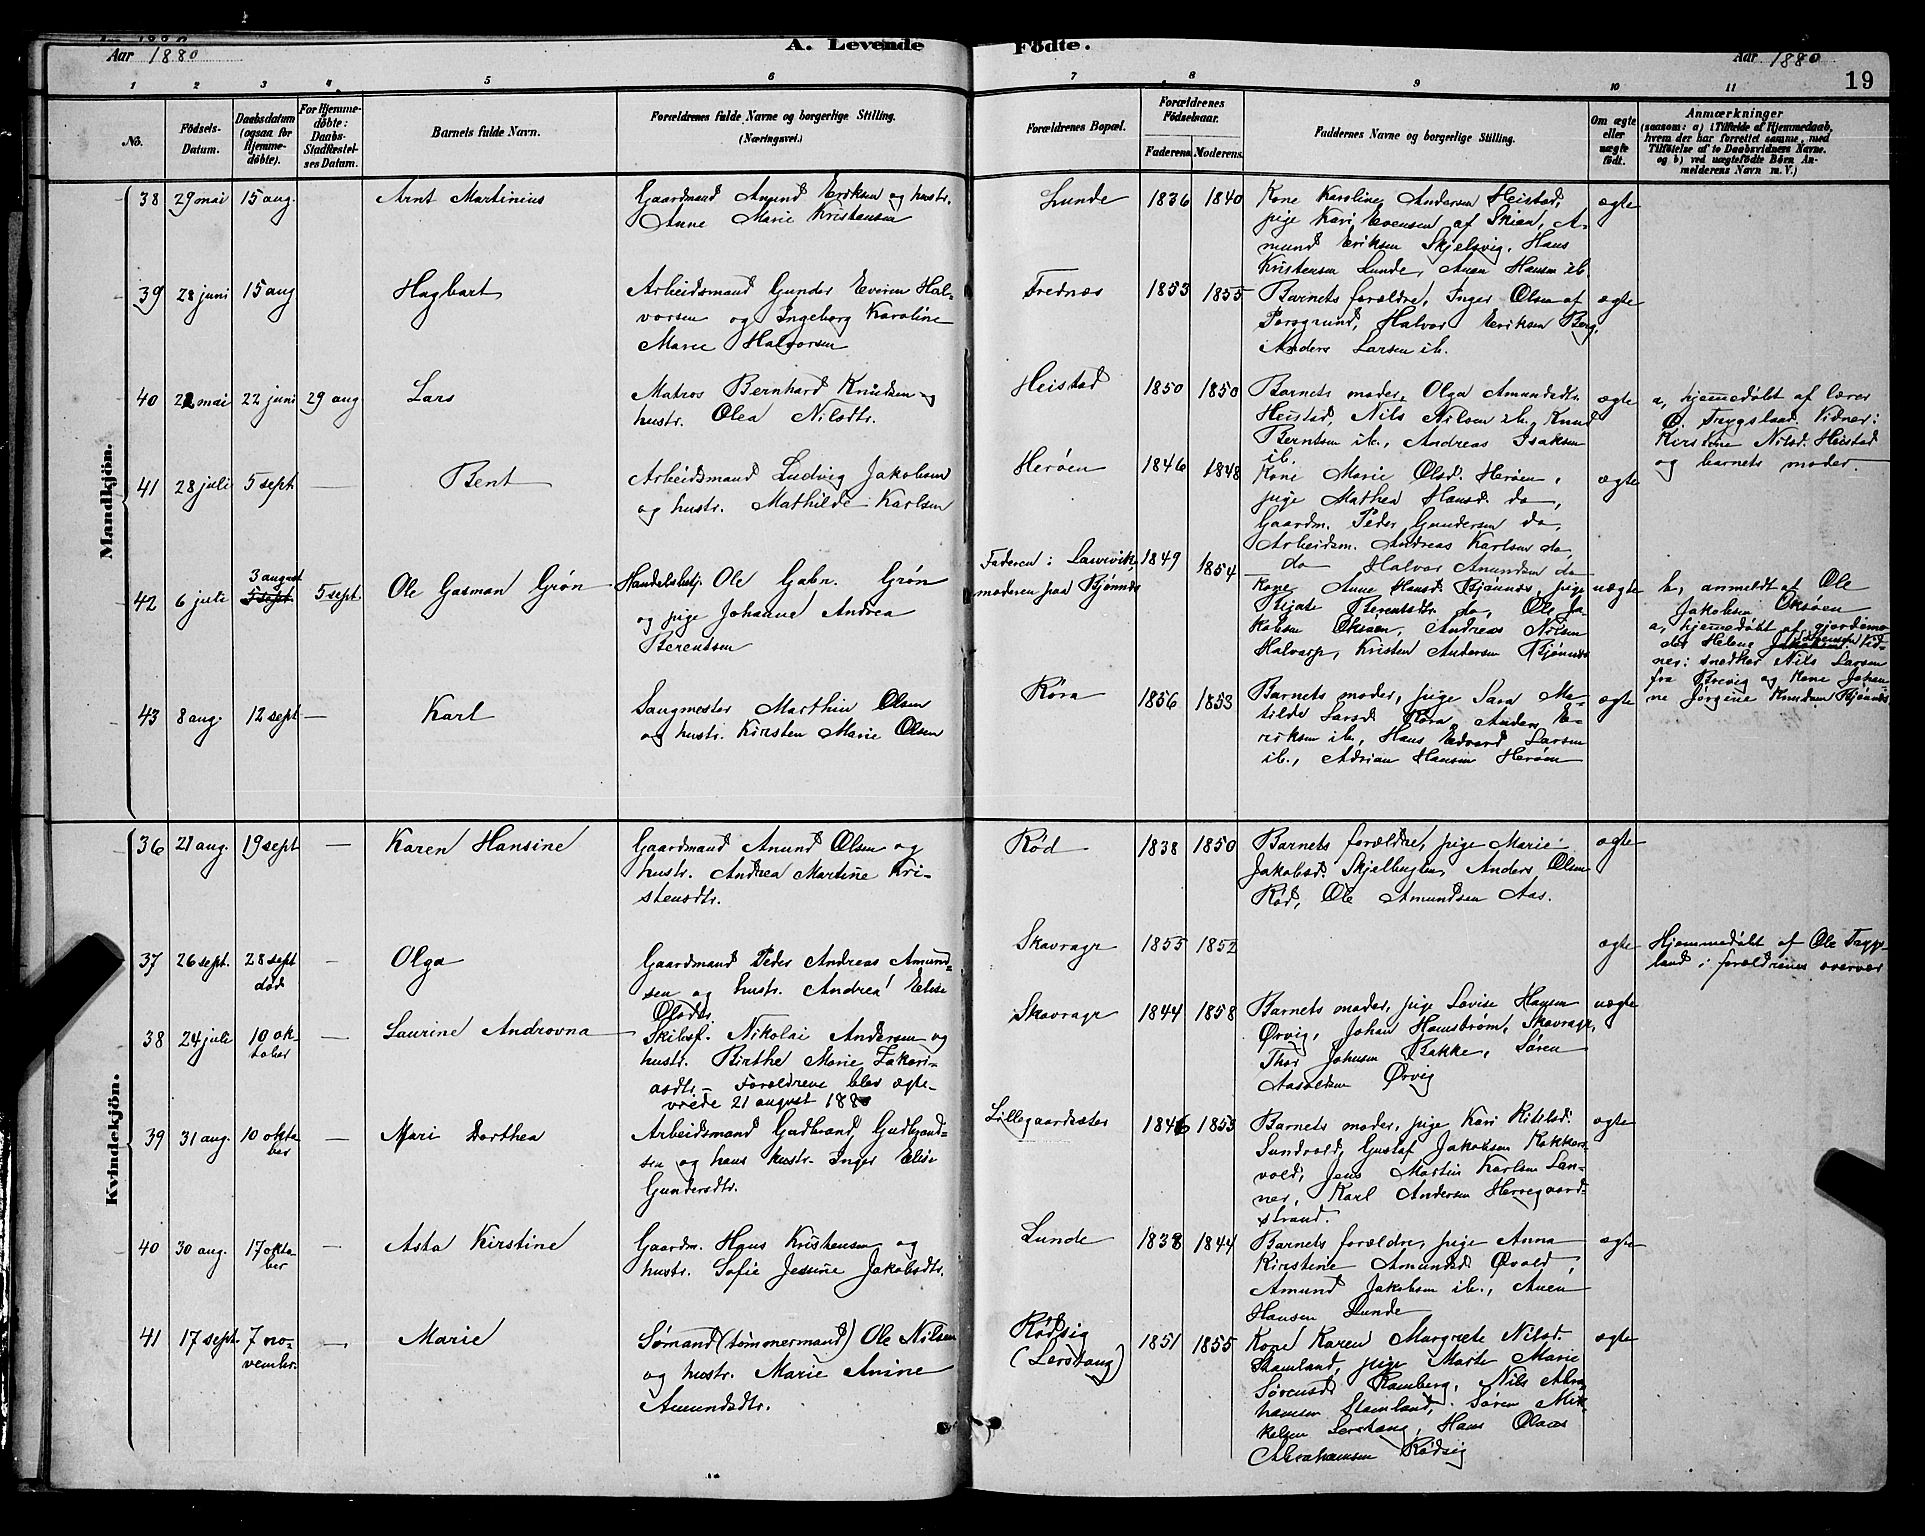 Aar 1880
A. Levende
Födte.
Aar 1880
19
1 2 3 4 5 6 7 8 9 10 11
No.
Födsels-
Datum.
Daabsdatum
(ogsaa for
Hjemme-
döbte).
For Hjemme-
döbte:
Daabs-
Stadfæstel-
ses Datum.
Barnets fulde Navn.
Forældrenes fulde Navne og borgerlige Stilling.
(Næringsvei.)
Forældrenes Bopæl.
Forældrenes
Födselsaar.
Faderens. Moderens.
Faddernes Navne og borgerlige Stilling.
Om ægte
eller
uægte
födt.
Anmærkninger
(saasom: a) i Tilfælde af Hjemmedaab,
hvem der har forrettet samme, med
Tilföielse af to Daabsvidners Navne,
og b) ved uægtefödte Börn An-
melderens Navn m. V.)
Mandkjön.
38 29 mai 15 aug. Arnt Martinius
Gaardmand Anund Eriksen og hustr.
Anne Marie Kristensen
Lunde 1836 1840
Kone Karoline Andersen Heistad,
pige Kari Evensen af Skien, A-
mund Eriksen Skjelsvig, Hans
Kristensen Lunde, Auen Hansen ib.
ægte
39 28 juni 15 aug Hagbart
Arbeidsmand Gunder Hal-
vorsen og Ingeborg Karoline
Marie Halvorsen
Frednæs 1853 1855
Barnets forældre, Inger Olsen af
Porsgrund, Halvor Eriksen Berg,
Anders Larsen ib.
ægte
40 22 mai 22 juni 29 aug Lars
Matros Bernhard Knudsen og
hustr. Olea Nilsdtr.
Heistad 1850 1850
Barnets moder, Olga Amundsdtr.
Heistad, Nils Nilsen ib., Knud
Berntsen ib., Andreas Isaksen
ib.
ægte
a, hjemmedøbt af lærer
O. Trygslaad. Vidner:
Kirstine Nilsd. Heistad
og barnets moder.
41 28 juli 5 sept — Bent
Arbeidsmand Ludvig Jakobsen
og hustr. Mathilde Karlsen
Herøen 1846 1848
Kone Marie Olsd. Herøen,
pige Mathea Hansd. do,
Gaardm. Peder Gundersen do,
Arbeidsm. Andreas Karlsen do,
do Halvor Amundsen do
ægte
42 6 juli 3 august 5 sept 5 sept. Ole Gasman Grøn
Handelsbetj. Ole Gabr. Grøn
og pige Johanne Andrea
Berentsen
Faderen: Laurvik
moderen paa Bjønnes
1849 1854
Kone Anne Hansd. Bjønnes, pige
Berentsdtr. do, Ole Ja-
kobsen Oksøen, Andreas Nilsen
Halvarp, Kristen Andersen Bjønnes
uægte
b, anmeldt af Ole
Jakobsen Oksøen
a, hjemmedøbt af gjordemo-
der Helene Vid-
ner: snedker Nils Larsen
fra Brevig og kone Johan-
ne Jørgine Knudsen Bjønnes
43 8 aug. 12 sept — Karl
Saugmester Marthin Olsen
og hustr. Kirsten Marie Olsen
Røra 1856 1853
Barnets moder, pige Sara Ma-
tilde Larsd. Røra, Anders E-
riksen ib., Hans Edvard Larsen
ib., Adrian Hansen Herøen
ægte
Kvindekjön.
36 21 aug. 19 sept — Karen Hansine
Gaardmand Anund Olsen og
hustr. Andrea Martine Kri-
stensdtr.
Rød 1838 1850
Barnets forældre, pige Marie
Jakobsd. Skjelbugten, Anders Olsen
Rød, Ole Amundsen Aas.
ægte
37 26 sept. 28 sept død — Olga
Gaardmand Peder Andreas Amund-
sen og hustr. Andrea Elise
Olsdtr.
Skavrage 1855 1852
ægte
Hjemmedøbt af Ole Tryg-
land i forældrenes overvær
38 24 juli 10 ok-
tober — Laurine Androvna
Skibsf. Nikolai Andersen og
hustr. Birthe Marie Zakari-
asdtr. — Forældrene blev ægte-
viede 21 august 1880
Skavrage 1844 1858
Barnets moder, pige Lovise Hansen
Ørvig, Johan Hamstrøm, Skavrage,
Thor Johnsen Bakke, Søren
Aasoldsen Ørvig
uægte
39 31 aug. 10 okto
ber — Mari Dorthea
Arbeidsmand Gudbrand Gudbrand-
sen og hans hustr. Inger Elise
Gundersdtr.
Lillegaardseter 1846 1853
Barnets moder, pige Kari Kittilsd.
Sundvold, Gustaf Jakobsen Kokkers-
vold, Jens Martin Karlsen Lan-
ner, Karl Andersen Herregaard-
strand.
ægte
40 30 aug. 17 okto
ber — Asta Kirstine
Gaardm. Hans Kristensen og
hustr. Sofie Jensine Jakobsdtr.
Lunde 1838 1844
Barnets forældre, pige Anna
Kirstine Amundsd. Øvald,
Amund Jakobsen ib., Auen
Hansen Lunde
ægte
41 17 sept. 7 no-
vembr. — Marie
Sømand (tømmermand) Ole Nilsen
og hustr. Marie Anine
Amundsdtr.
Rødsig
(Lerstang)
1851 1855
Kone Karen Margrete Nilsd.
Stamland, pige Marte Marie
Sørensd. Ramberg, Nils Abra-
hamsen Stamland, Søren Mik-
kelsen Lerstang, Hans Olaus
Abrahamsen Rødsig
ægte